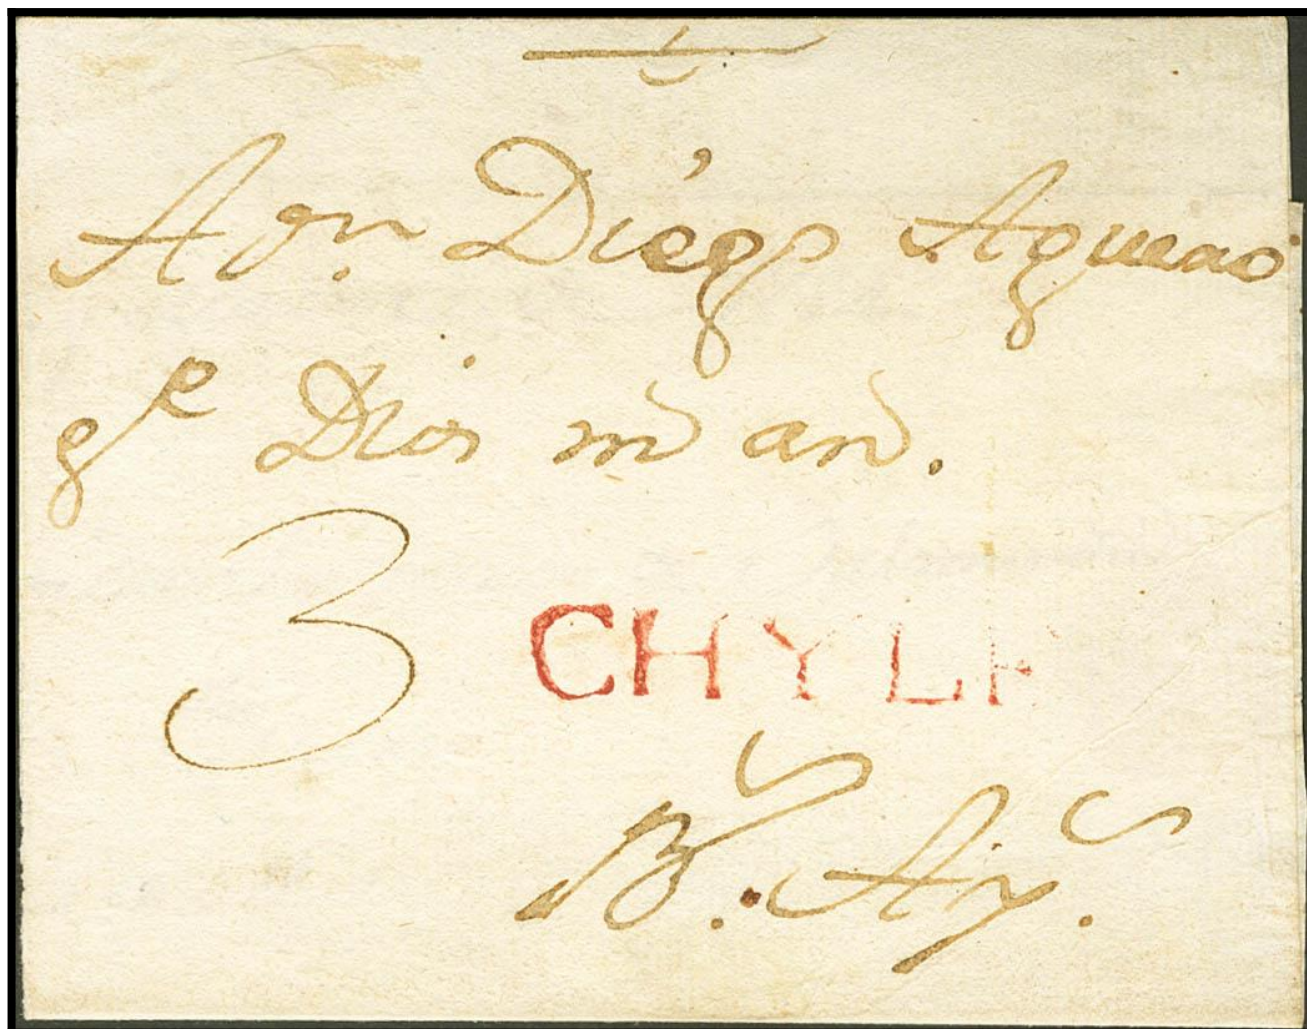 A Dn. Diego Aguero
ge Dios ms as.
3
CHYLE
Bs. Ays.